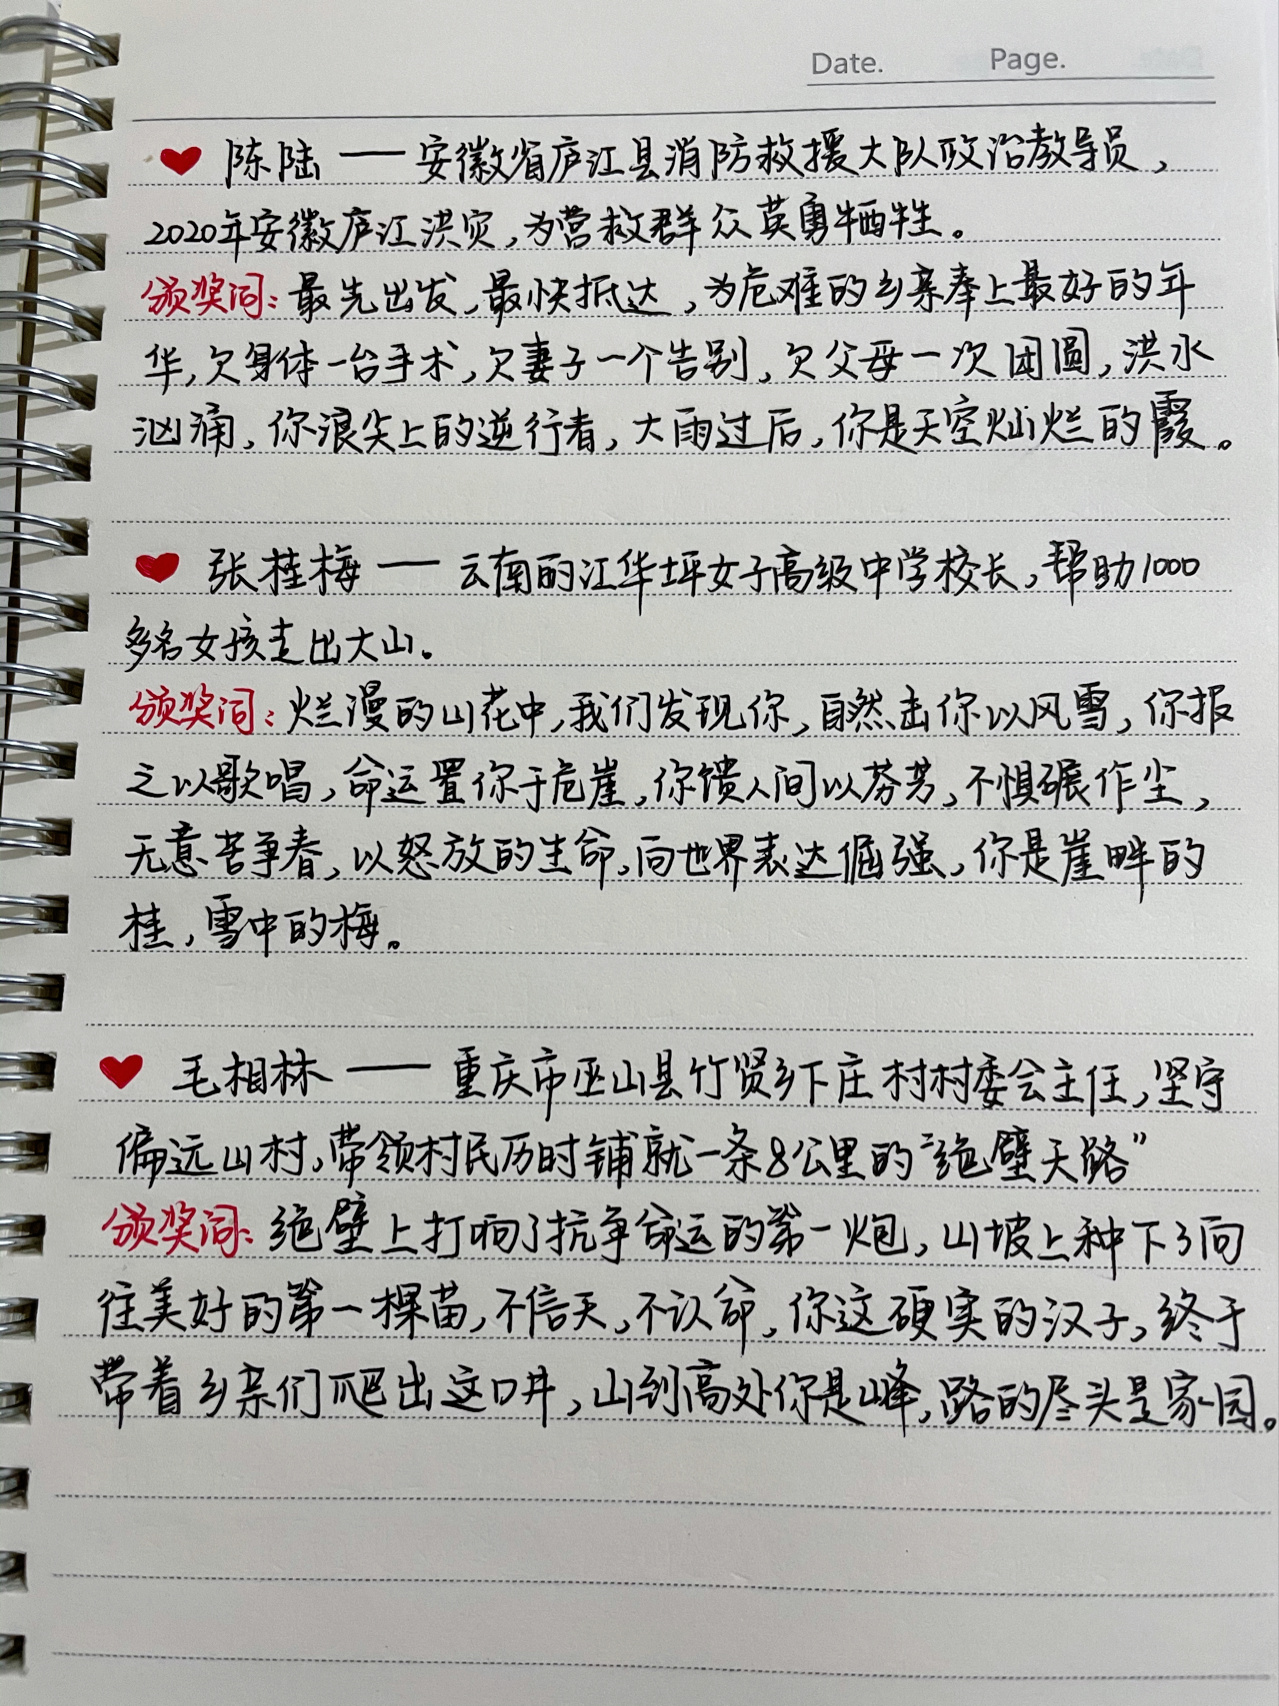 Date. Page.
陈陆——安徽省庐江县消防救援大队政治教导员,
2020年安徽庐江洪灾,为营救群众英勇牺牲。
颁奖词:最先出发,最快抵达,为危难的乡亲奉上最好的年
华,欠身体一台手术,欠妻子一个告别,欠父母一次团圆,洪水
汹涌,你浪尖上的逆行者,大雨过后,你是天空灿烂的霞。
张桂梅——云南丽江华坪女子高级中学校长,帮助1000
多名女孩走出大山。
颁奖词:烂漫的山花中,我们发现你,自然击你以风雪,你报
之以歌唱,命运置你于危崖,你馈人间以芬芳,不惧碾作尘,
无意苦争春,以怒放的生命,向世界表达倔强,你是崖畔的
桂,雪中的梅。
毛相林——重庆市巫山县竹贤乡下庄村村委会主任,坚守
偏远山村,带领村民历时铺就一条8公里的“绝壁天路”
颁奖词:绝壁上打响了抗争命运的第一炮,山坡上种下了向
往美好的第一棵苗,不信天,不认命,你这硬实的汉子,终于
带着乡亲们爬出这口井,山到高处你是峰,路的尽头是家园。